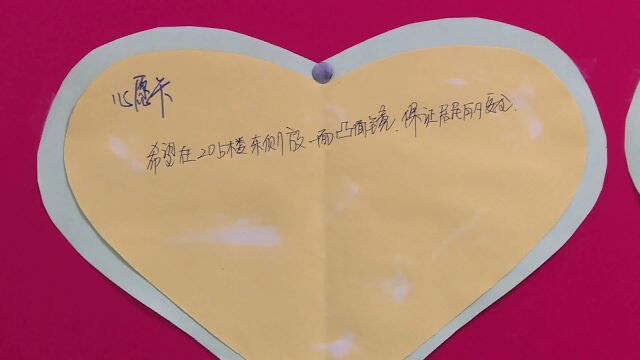 心愿卡
希望在205楼东侧设一面凸面镜.保证居民的安全.